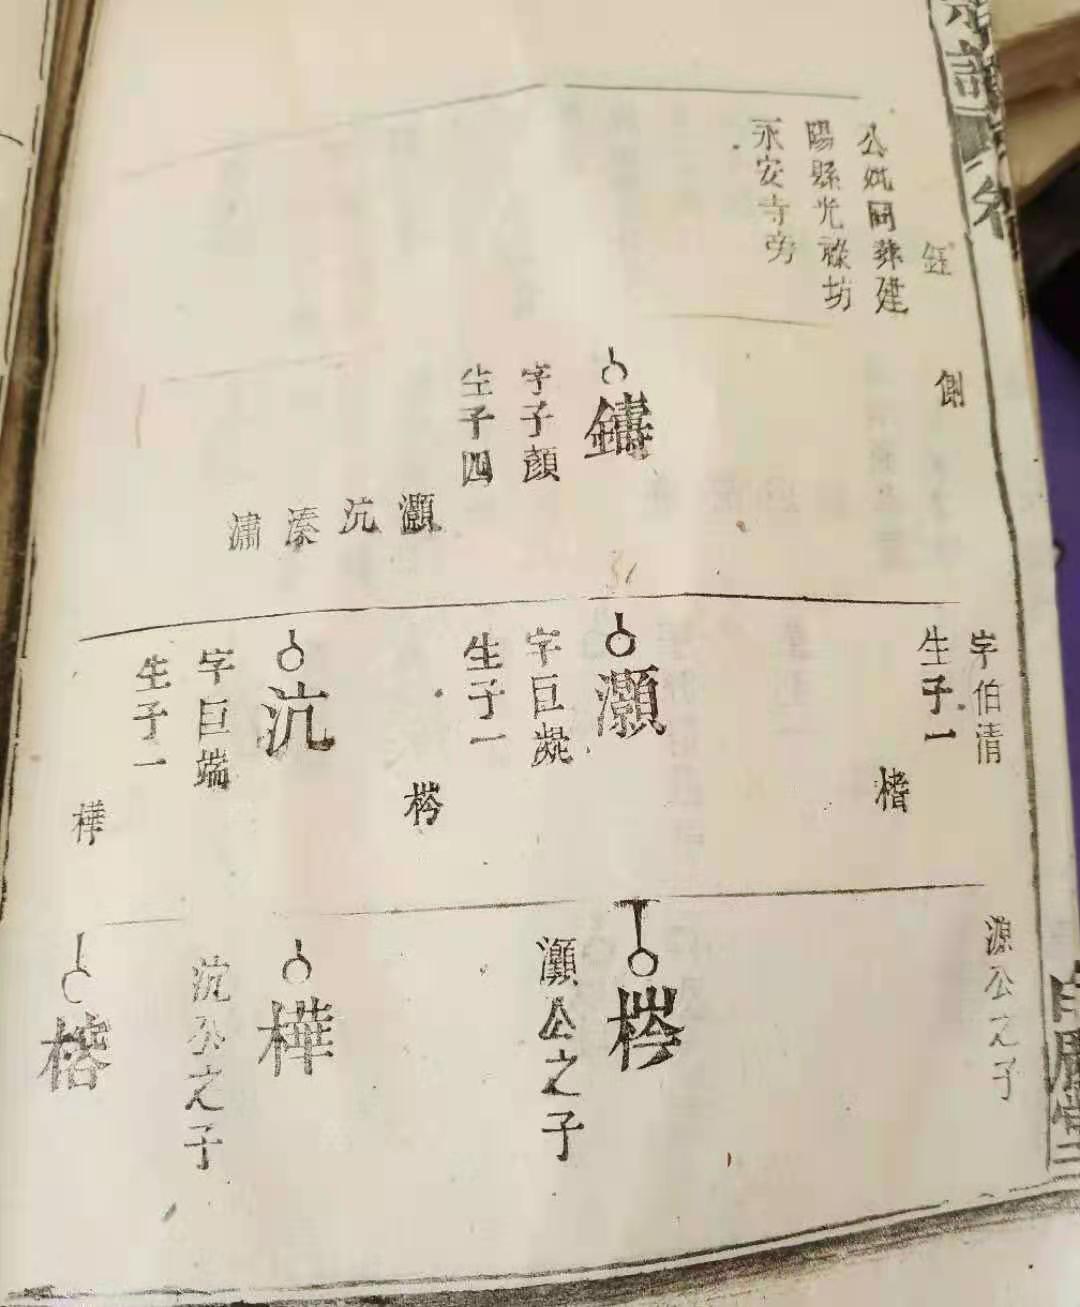 公妣同葬建
陽縣光祿坊
永安寺旁
鑄
字子顏
生子四
灝
沆
溱
潚
字伯清
生子一
楷
灝
字巨巍
生子一
梣
沆
字巨端
生子一
樺
源公之子
梣
灝公之子
樺
沆公之子
榕